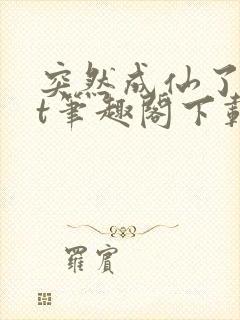 突然成仙了
t笔趣阁下载
罗宾